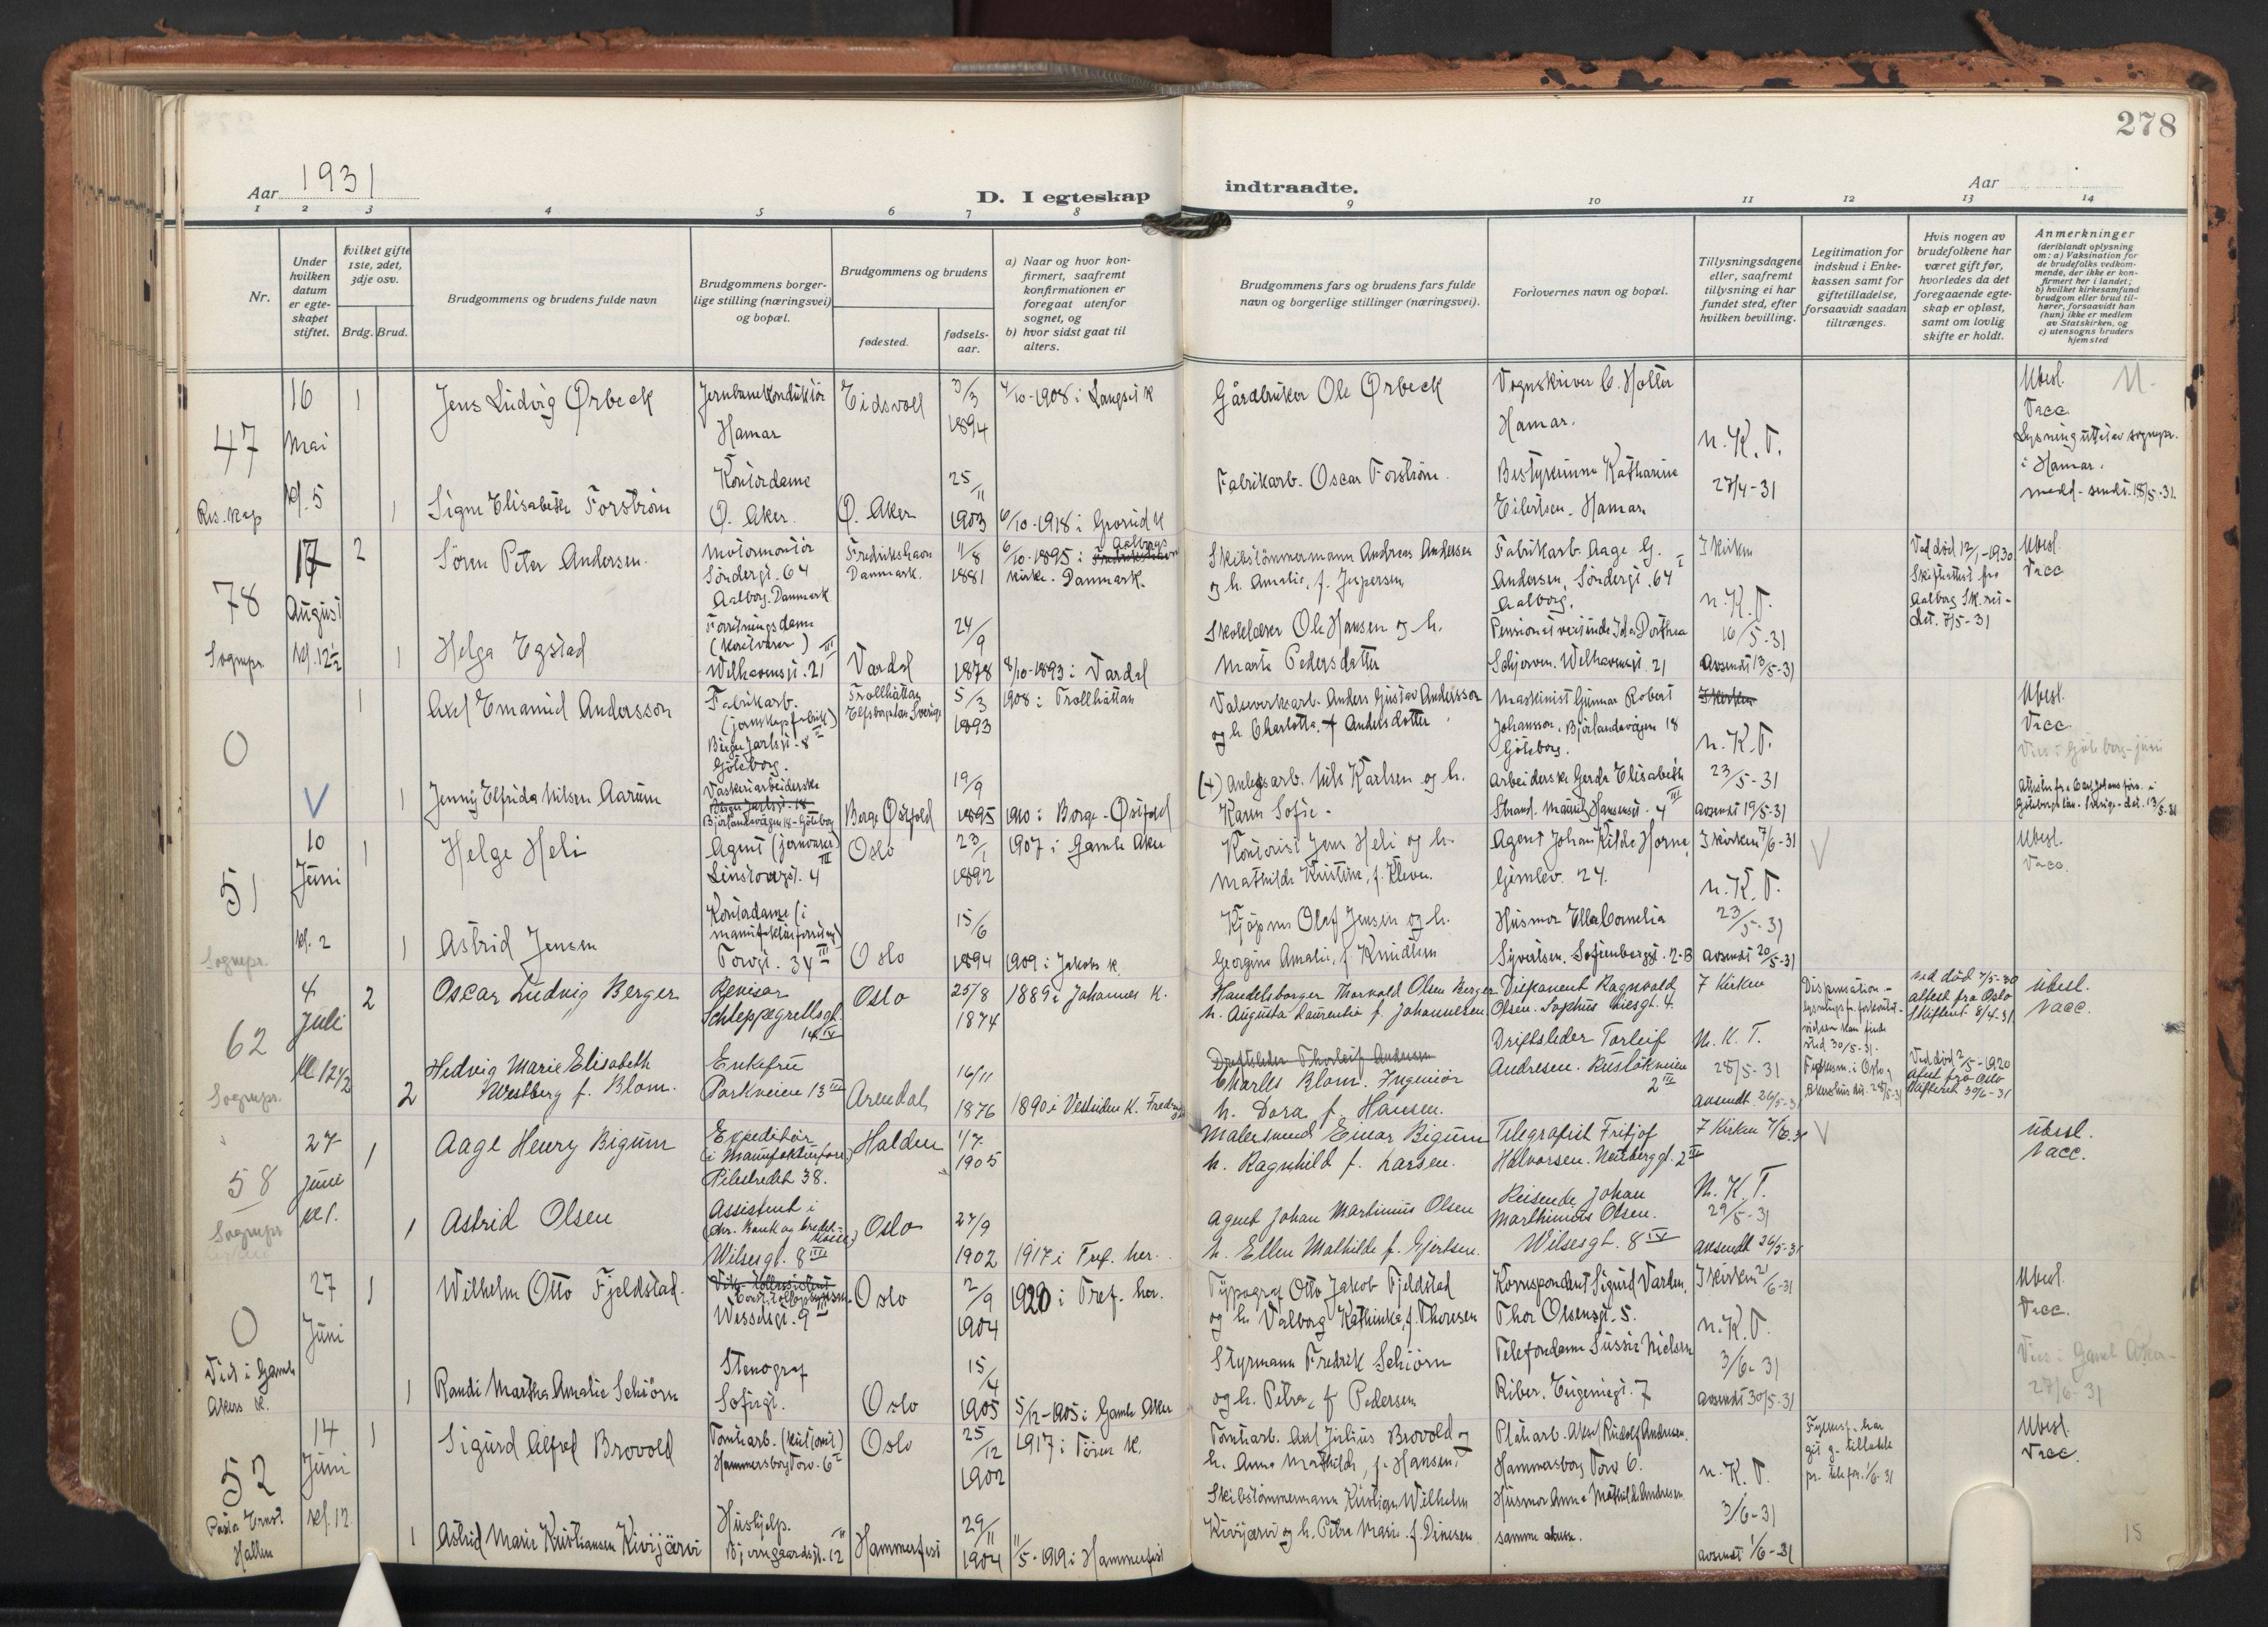 278
Aar 1931
D. I egteskap
indtraadte.
Aar
1 2 3 4 5 6 7 8 9 10 11 12 13 14
Nr.
Under hvilken datum er egteskapet stiftet.
Hvilket gifte 1ste, 2det, 3dje osv.
Brdg. Brud.
Brudgommens og brudens fulde navn
Brudgommens borgerlige stilling (næringsvei) og bopæl.
Brudgommens og brudens
fødested.
fødselsaar.
a) Naar og hvor konfirmert, saafremt konfirmationen er foregaat utenfor sognet, og
b) hvor sidst gaat til alters.
Brudgommens fars og brudens fars fulde navn og borgerlige stillinger (næringsvei).
Forlovernes navn og bopæl.
Tillysningsdagene eller, saafremt tillysning ei har fundet sted, efter hvilken bevilling.
Legitimation for indskud i Enkekassen samt for giftetilladelse, forsaavidt saadan tiltrænges.
Hvis nogen av brudefolkene har været gift før, hvorledes da det foregaaende egteskap er opløst, samt om lovlig skifte er holdt.
Anmerkninger
(deriblandt oplysning om: a) Vaksination for de brudefolks vedkommende, der ikke er konfirmert her i landet; b) hvilket kirkesamfund brudgom eller brud tilhører, forsaavidt han (hun) ikke er medlem av Statskirken, og c) utensogns bruders hjemsted
47
Res. kap
16 Mai kl. 5
1
Jens Ludvig Ørbeck
Jernbanekonduktør
Hamar
Eidsvoll
3/3 1894
4/10-1908 i Langset K
Gårdbruker Ole Ørbeck
Vognskriver C. Holter
Hamar.
N. K. T.
27/4-31
Ubesl.
Vacc
Lysning utført av sognepr.
i Hamar.
medd. sendt 18/5-31.
1
Signe Elisabeth Forström
Kontordame
Ø. Aker.
Ø. Aker
25/11 1903
6/10-1918 i Grorud K
Fabrikarb. Oscar Forström.
Bestyrerinne Katharine
Eilertsen. Hamar
78
Sognepr.
17 August kl. 12 1/2
2
Sören Peter Andersen.
Motormontör
Söndergt. 64
Aalborg. Danmark
Fredrikshavn
Danmark.
11/8 1881
6/10-1895 i Aalborgs
kirke. Danmark.
Skibstömmermann Andreas Andersen
og h. Amalie, f. Jepersen
Fabrikarb. Aage G.
Andersen, Söndergt. 64 I
Aalborg.
I kirken
N. K. T.
16/5-31
avsendt 13/5-31
Ved död 12/1-1930
Skifteattest fra
Aalborg Sk. ret-
dat. 7/5-31
Ubesl.
Vacc
1
Helga Egstad
Forretningsdame
(korsetvarer)
Welhavensgt. 21 III
Vardal
24/9 1878
8/10-1893 i Vardal
Skolelærer Ole Hansen og h.
Marte Pedersdatter
Pensionatveitinde Ida Dorthea
Schjerven. Welhavensgt. 21
0
1
Axel Emanuel Andersson
Fabrikarb.
(jernskapfabrik)
Birger Jarlsgt. 8 II
Göteborg.
Trollhättan
Elfsborgslän Sverige
5/3 1893
1908 i Trollhättan
Valseverksarb. Anders Gustav Andersson
og h. Charlotta, f Andersdotter
Maskinist Gunnar Robert
Johansson. Björlandavägen 18
Göteborg.
I kirken
N. K. T.
23/5-31
avsendt 19/5-31
Ubesl.
Vacc.
Viet i Göteborg-juni
V
1
Jenny Elfrida Nilsen Aarum
Vaskeriarbeiderske
Björlandavägen 18-Göteborg
Borge Østfold
19/9 1895
1910 i Borge-Østfold
(+) Anlegsarb. Nils Karlsen og h.
Karen Sofie-
arbeiderske Gerda Elisabeth
Strand. Mauritz Hansensgt. 4 III
51
Sognepr.
10 Juni kl. 2
1
Helge Heli
Agent (jernvarer)
Linstowsgt. 4 III
Oslo
23/1 1892
1907 i Gamle Aker
Kontorist Jens Heli og h.
Mathilde Kristine, f. Kleven.
Agent Johan Kilde Horne,
Gimlev. 24.
I kirken 7/6-31
N. K. T.
23/5-31
avsendt 20/5-31
V
Ubesl.
Vacc.
1
Astrid Jensen
Kontordame (i
manufakturforretning)
Torvgt. 34 III
Oslo
15/6 1894
1909 i Jakobs K.
Kjøpmn Olaf Jensen og h.
Georgine Amalie, f. Knudtsen
Husmor Ella Cornelia
Syvertsen. Sofienberggt. 2-B
62
Sognepr.
4 Juli Kl 12 1/2
2
Oscar Ludvig Berger
Revisor
Schleppegrellsgt.
14 IV
Oslo
25/8 1874
1889 i Johannes K.
Handelsborger Thorvald Olsen Berger
h. Augusta Laurentia f. Johannesen
Disponent Ragnvald
Olsen. Sophus Liesgt. 4.
I Kirken
N. K. T.
28/5-31
avsendt 26/5-31
Dispensation
sted 30/5-31.
Fylkesm. i Oslo og
Akershus dat. 28/5-31
ved död 7/5-30
attest fra Oslo
Skifteret 8/4-31
Ubesl.
Vacc.
2
Hedvig Marie Elisabeth
Westberg f. Blom.
Enkefru
Parkveien 13 III
Arendal
16/11 1876
1890 i Vestsiden K. Fredr
Driftsleder Thorleif Andresen
Charles Blom. Ingeniör
h. Dora f. Hansen.
Driftsleder Torleif
Andresen. Ruslökveien
2 III
Ved död 2/5-1920
attest fra Oslo
Skifteret 30/6-31
58
Sognepr
27 Juni kl 1.
1
Aage Henry Bigum
Expeditör
(i Manufakturforr.)
Pilestredet 38.
Halden
1/7 1905
Malersvend Einar Bigum
h. Ragnhild f. Larsen.
Telegrafist Fritjof
Halvorsen. Neuberggt. 2 II
I Kirken 7/6.31
N. K. T.
29/5-31
avsendt 26/5-31
V
Ubesl.
Vacc.
1
Astrid Olsen
Assistent i
(Chr. Bank og Kredit-
kasse)
Wilsesgt. 8 IV
Oslo
27/9 1902
1917 i Tref. her.
Agent Johan Martinius Olsen
h. Ellen Mathilde f. Gjertsen.
Reisende Johan
Marthinius Olsen.
Wilsesgt. 8 IV
0
Viet i Gamle
Akers K.
27 Juni
1
Wilhelm Otto Fjeldstad.
Wesselsgt. 9 III
Oslo
2/9 1904
1920 i Tref. her.
Typograf Otto Jakob Fjeldstad
og h. Valborg Kathinka, f. Thoresen
Korrespondent Sigurd Varden,
Thor Olsensgt. 5.
I kirken 21/6-31
N. K. T.
3/6-31
avsendt 30/5-31
Ubesl.
Vacc.
Viet i Gamle Aker
27/6-31
1
Randi Martha Amalie Schiörn
Stenograf
Sofiegt.
Oslo
15/4 1905
5/12-1905 i Gamle Aker
Styrmann Fredrik Schiörn
og h. Petra, f Pedersen
Telefondame Sussie Nielsen
Riber. Eugeniegt. 7
52
Pastor Ernst
Hallen
14 Juni kl. 12.
1
Sigurd Alfred Brovold
Tomtearb.
Hammersborg Torv. 6 I
Oslo
25/12 1902
1917 i Töien K.
Tomtearb. Axel Julius Brovold og
h. Anna Mathilde, f. Hansen,
Platearb. Aksel Rudolf Andresen.
Hammersborg Torv 6.
N. K. T.
3/6-31
avsendt 1/6-31
Fylkesm. har
git g. tillatelse
pr. telefon. 1/6-31
Ubesl.
Vacc.
1
Astrid Marie Kristiansen Kivijärvi
Hushjelp.
Bjerregaardsgt. 12 IV
Hammerfest
29/11 1904
11/5-1919 i Hammerfest
Skibstömmermann Kristian Wilhelm
Kivijærvi og h. Petra Marie f. Dinesen
Husmor Anna Mathilde Andresen
samme adresse.
15